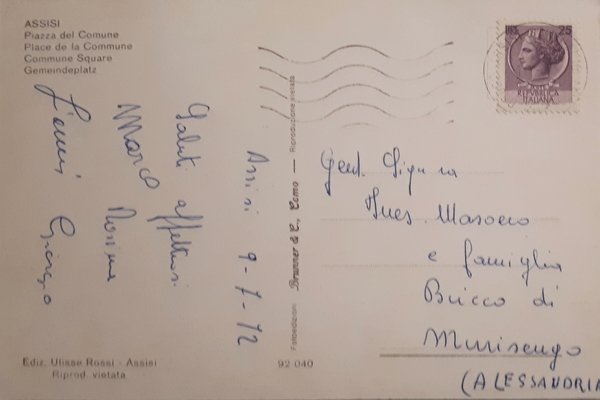 ASSISI
Piazza del Comune
Place de la Commune
Commune Square
Gemeindeplatz
Assisi 9-7-72
Saluti affettuosi
Marco Rosina
Giorgio
Ediz. Ulisse Rossi - Assisi
Riprod. vietata
Fotoedizioni Brunner & C., Como — Riproduzione vietata
92-040
25
REPUBBLICA
ITALIANA
Gent. Signora
Ines Masoero
e famiglia
Bricco di
Murisengo
(ALESSANDRIA